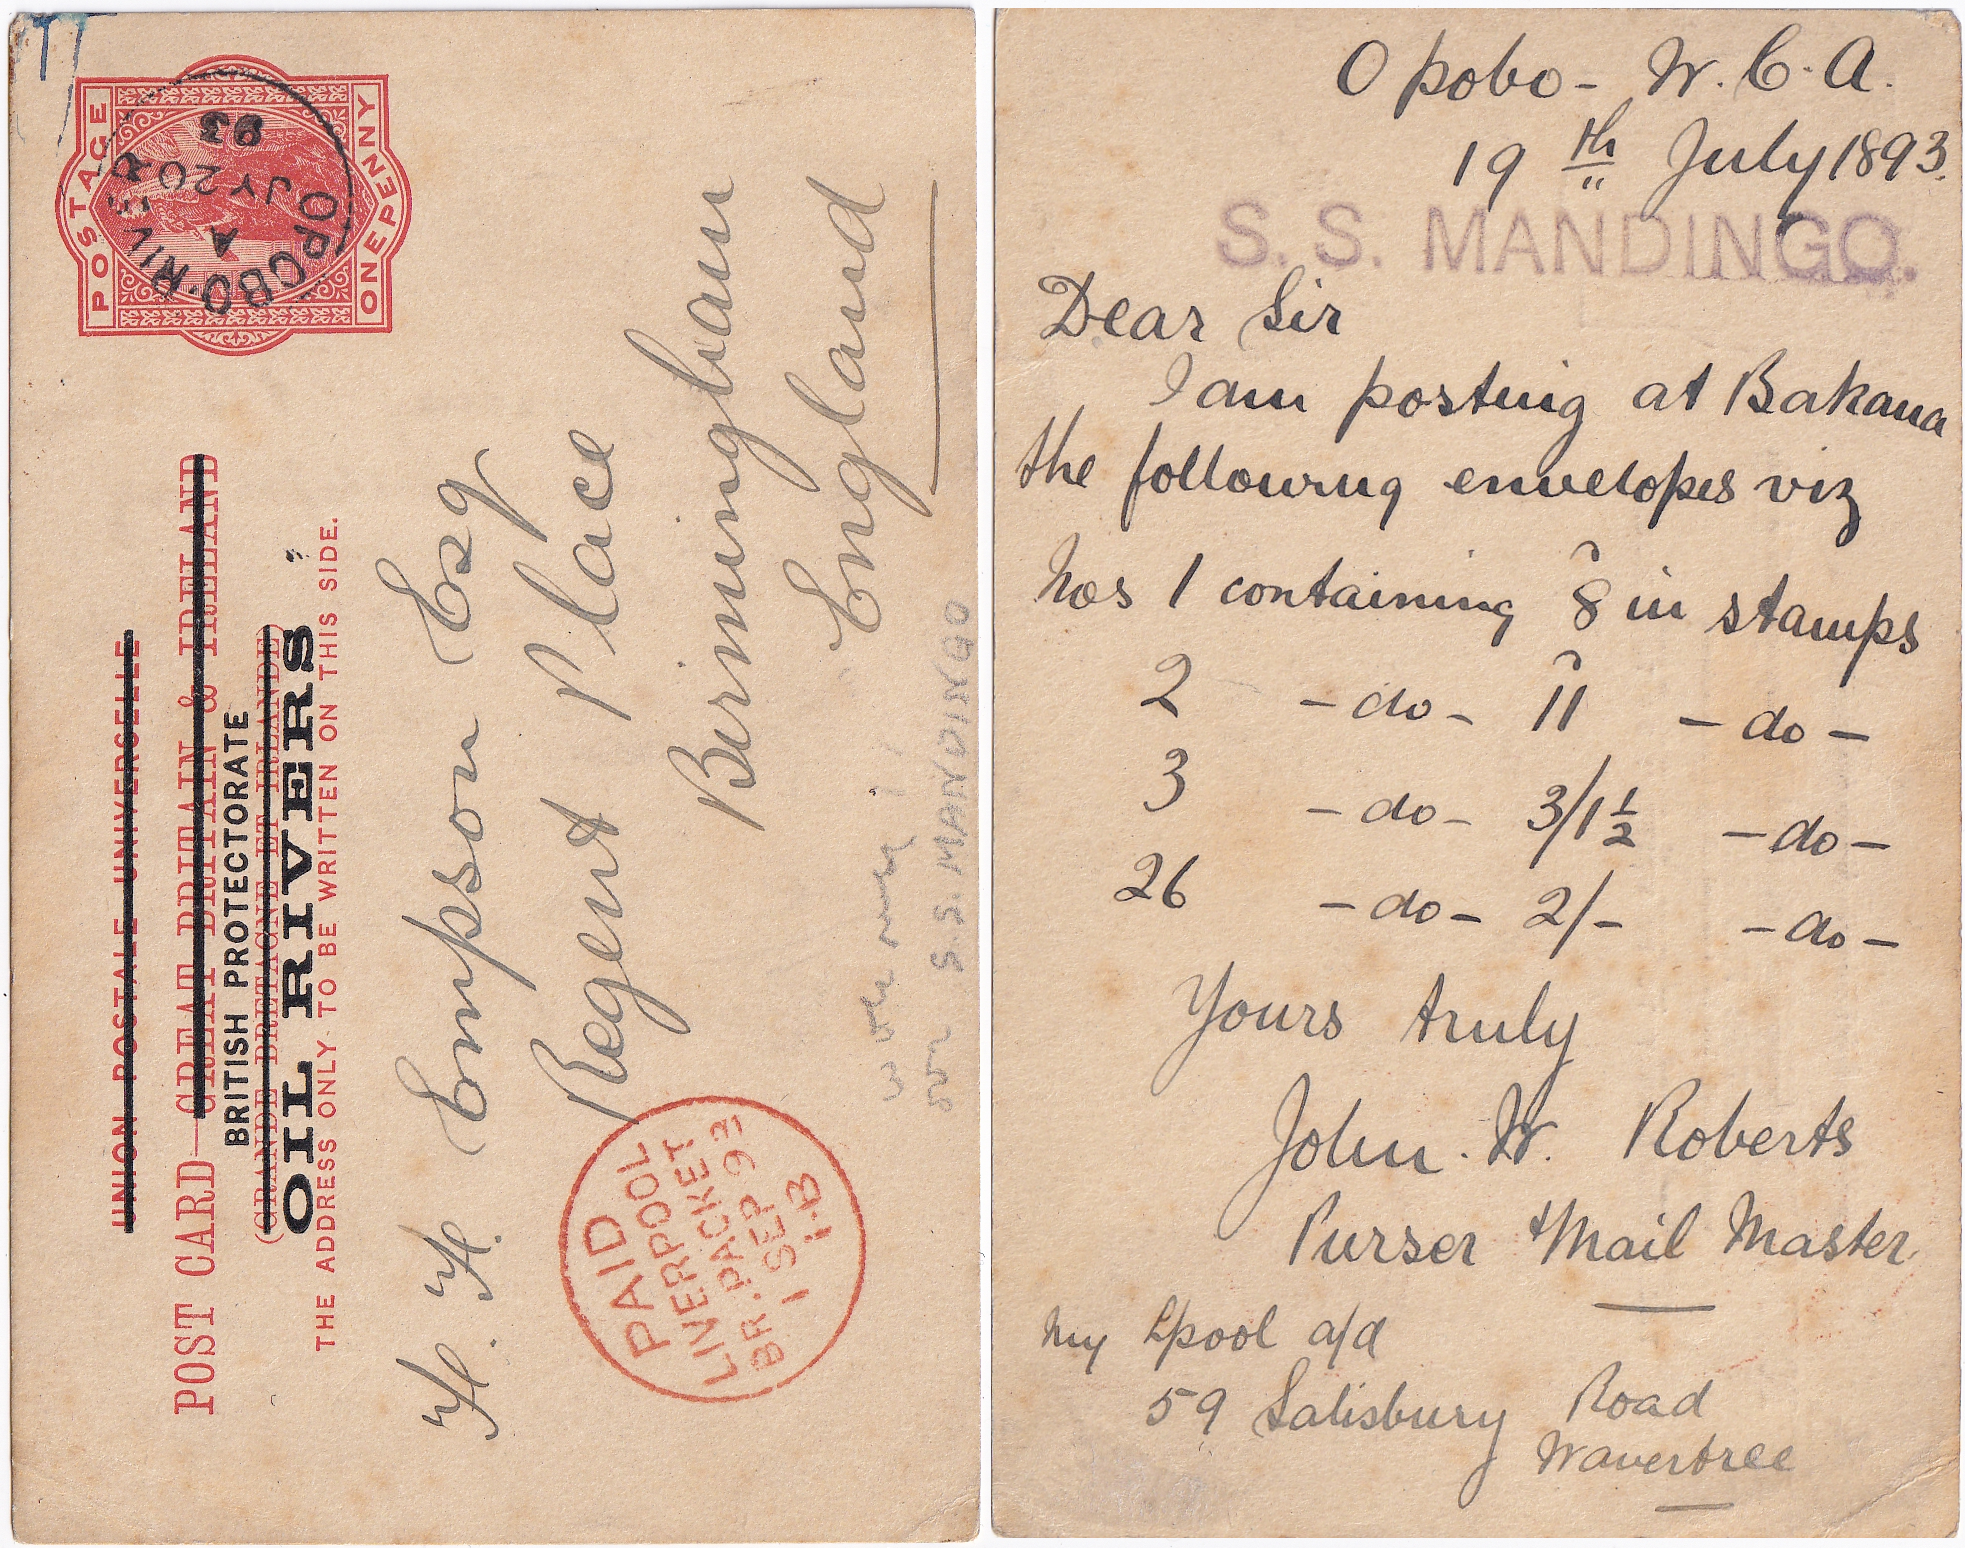 POSTAGE
ONE PENNY
OPOBO·RIVER
A
JY 20
93
UNION POSTALE UNIVERSELLE
POST CARD—GREAT BRITAIN & IRELAND
BRITISH PROTECTORATE
(GRANDE BRETAGNE ET IRLANDE)
OIL RIVERS
THE ADDRESS ONLY TO BE WRITTEN ON THIS SIDE.
H. H. Empson Esq
Regent Place
Birmingham
England
PAID
LIVERPOOL
BR. PACKET
1 SEP 93
S.S. MANDINGO
Opobo - W. C. A.
19th July 1893.
S. S. MANDINGO.
Dear Sir
I am posting at Bakana
the following envelopes viz
Nos 1 containing 8 in stamps
2 - do - 11 - do -
3 - do - 3/1½ - do -
26 - do - 2/- - do -
Yours truly
John. W. Roberts
Purser & Mail Master
My Lpool a/d
59 Salisbury Road
Wavertree